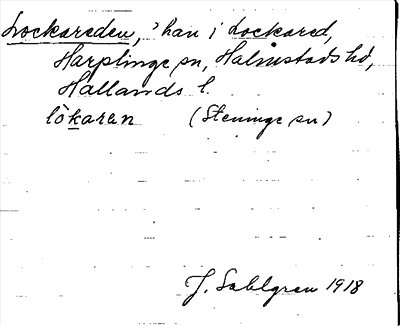 Lockareden, 'han i Lockared,
Harplinge sn, Halmstads hd,
Hallands l.
lòkaran (Steninge sn)
J. Sahlgren 1918